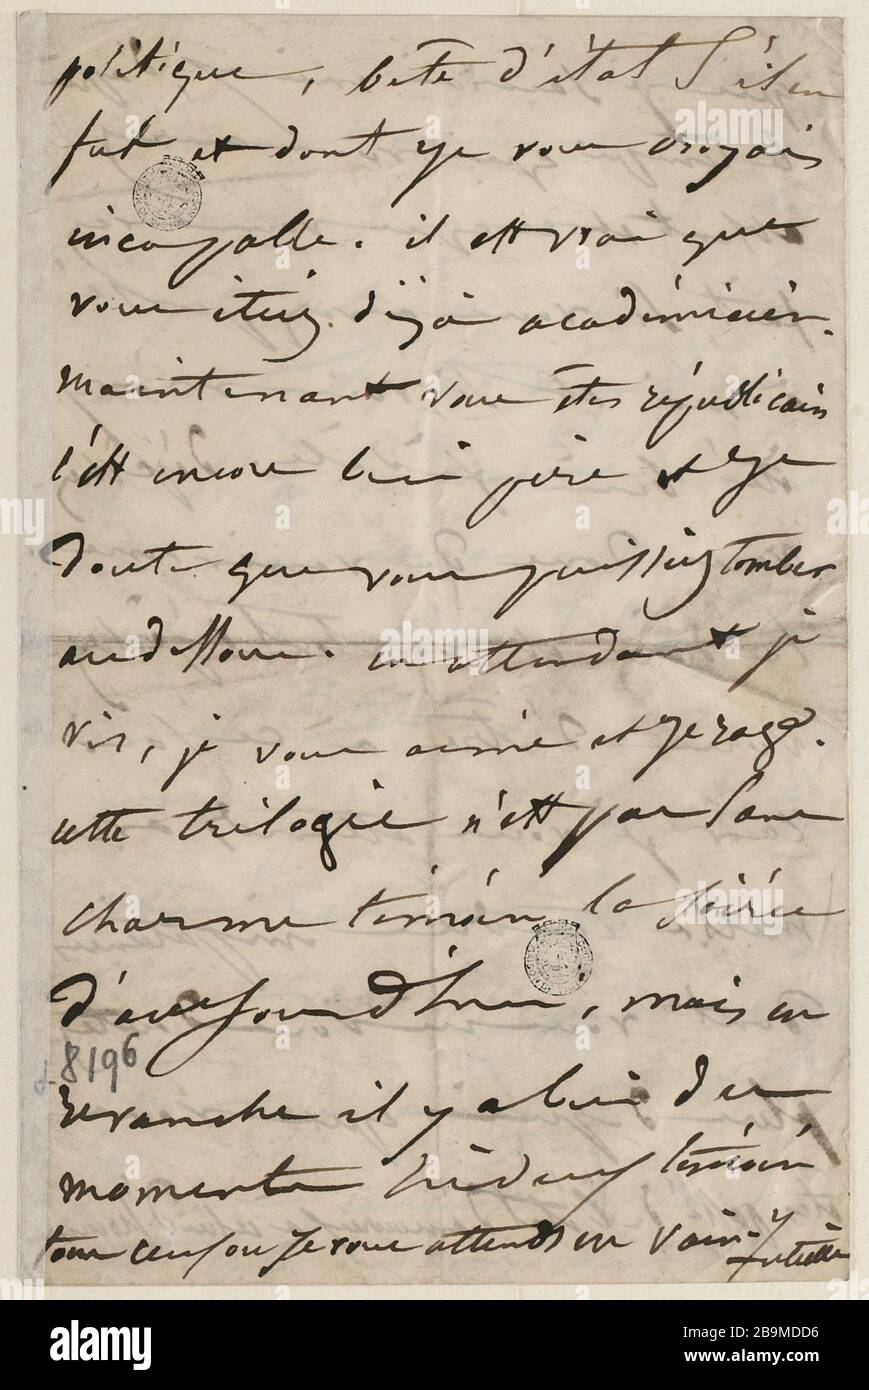 politique, bête d'état s'il en
fut et dont je vous croyais
incapable. il est vrai que
vous étiez déjà académicien.
maintenant vous êtes républicain
c'est encore bien pire et je
doute que vous puissiez tomber
au dessous. en attendant je
vis, je vous aime et je rage.
cette trilogie n'est pas sans
charme témoin la soirée
d'aujourd'hui, mais en
revanche il y a bien des
moments hideux témoin
tous ceux où je vous attends en vain.
Juliette
8196
alamy
Image ID: 2B9MDD6
www.alamy.com